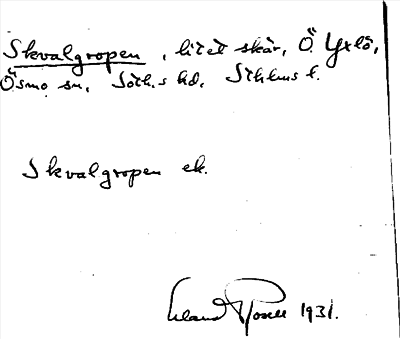 Skvalgropen, litet skär, Ö. Yxlö,
Ösmo sn, Soth.s hd, Sthlms l.
Skvalgropen ek.
Erland Rosell 1931.